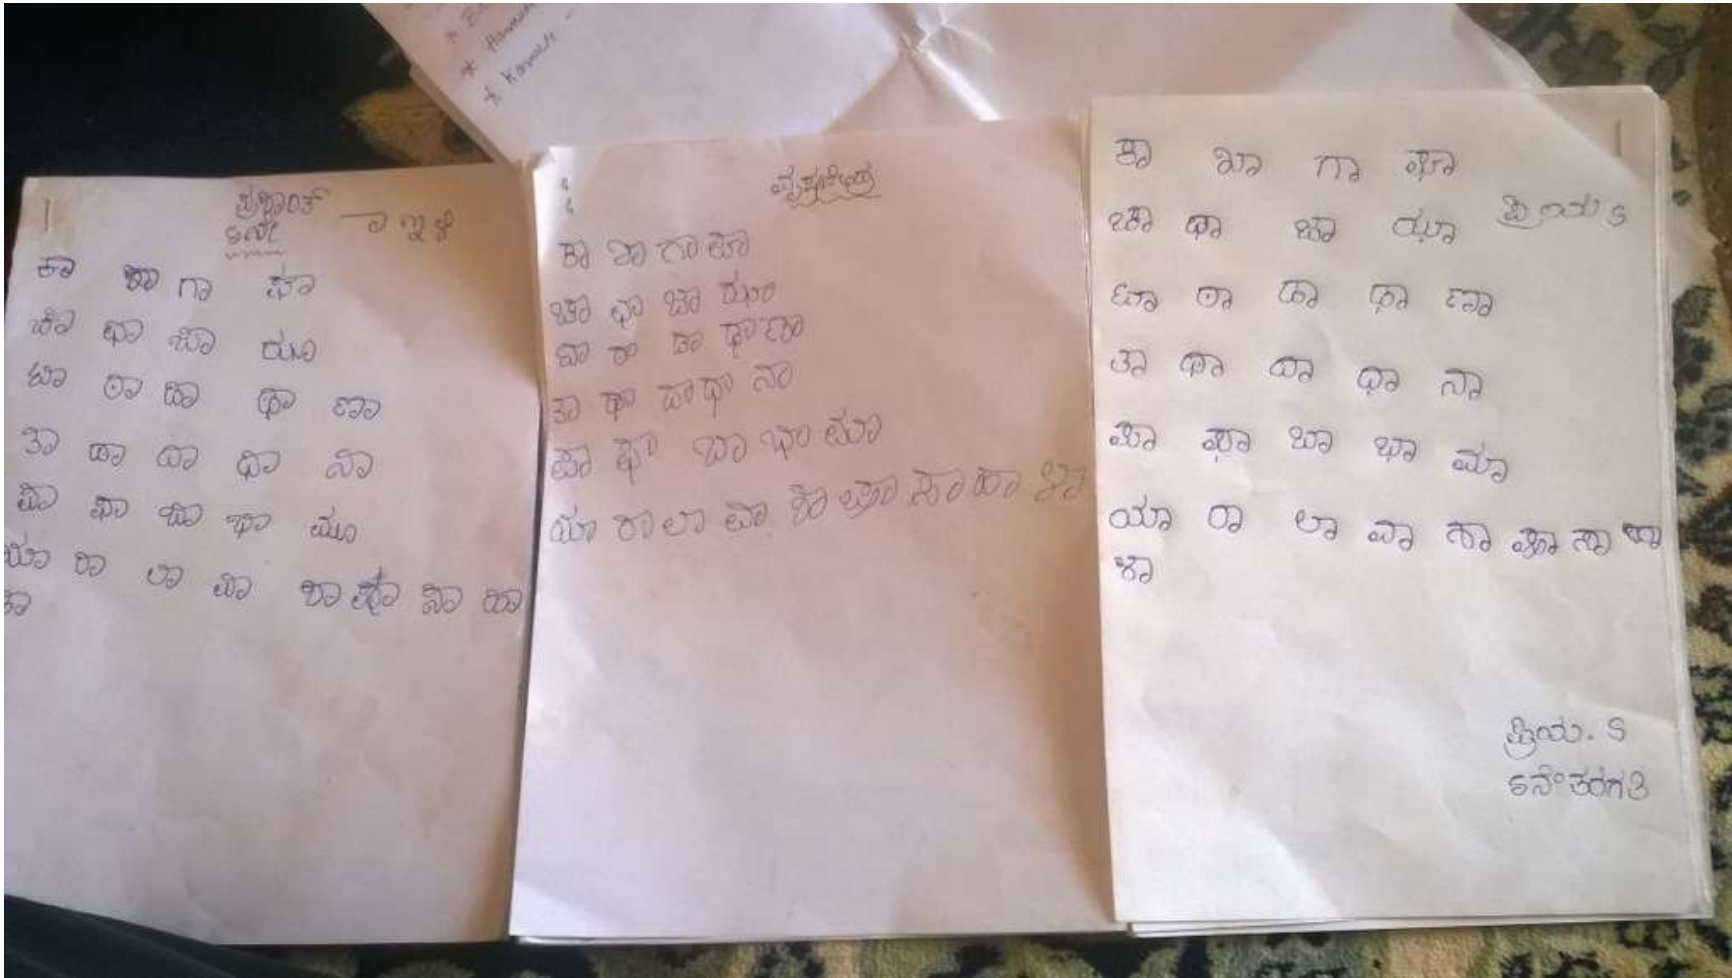 ಪ್ರಶಾಂತ್
ಕಾ ಖಾ ಗಾ ಘಾ
ಚಾ ಛಾ ಜಾ ಝಾ
ಟಾ ಠಾ ಡಾ ಢಾ ಣಾ
ತಾ ಥಾ ದಾ ಧಾ ನಾ
ಪಾ ಫಾ ಬಾ ಭಾ ಮಾ
ಯಾ ರಾ ಲಾ ವಾ ಶಾ ಷಾ ಸಾ ಹಾ
ಳಾ
ಕಾ ಖಾ ಗಾ ಘಾ
ಚಾ ಛಾ ಜಾ ಝಾ
ಟಾ ಠಾ ಡಾ ಢಾ ಣಾ
ತಾ ಥಾ ದಾ ಧಾ ನಾ
ಪಾ ಫಾ ಬಾ ಭಾ ಮಾ
ಯಾ ರಾ ಲಾ ವಾ ಶಾ ಷಾ ಸಾ ಹಾ ಳಾ
ಕಾ ಖಾ ಗಾ ಘಾ
ಪ್ರಿಯಾ S
ಚಾ ಛಾ ಜಾ ಝಾ
ಟಾ ಠಾ ಡಾ ಢಾ ಣಾ
ತಾ ಥಾ ದಾ ಧಾ ನಾ
ಪಾ ಫಾ ಬಾ ಭಾ ಮಾ
ಯಾ ರಾ ಲಾ ವಾ ಶಾ ಷಾ ಸಾ ಹಾ
ಳಾ
ಪ್ರಿಯ. S
6ನೇ ತರಗತಿ